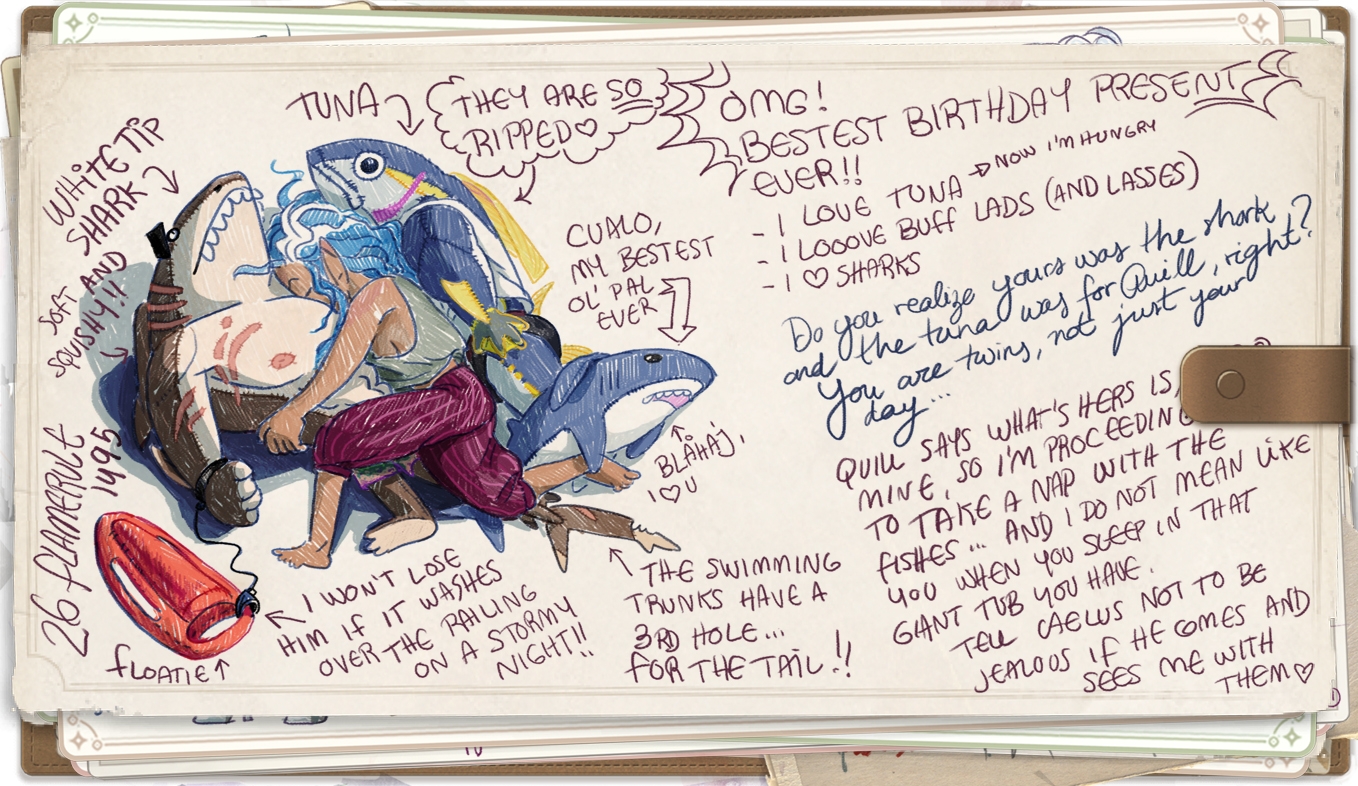 TUNA
THEY ARE SO
RIPPED♡
WHITE TIP
SHARK
SOFT AND
SQUISHY!!
CUALO,
MY BESTEST
OL' PAL
EVER
BLÅHAJ,
I ♡ U
26 FLAMERULE
1495
FLOATIE
I WON'T LOSE
HIM IF IT WASHES
OVER THE RAILING
ON A STORMY
NIGHT!!
THE SWIMMING
TRUNKS HAVE A
3RD HOLE...
FOR THE TAIL!!
OMG!
BESTEST BIRTHDAY PRESENT
EVER!!
- I LOVE TUNA → NOW I'M HUNGRY
- I LOOOVE BUFF LADS (AND LASSES)
- I ♡ SHARKS
Do you realize yours was the shark
and the tuna was for Quill, right?
You are twins, not just your
day...
QUILL SAYS WHAT'S HERS IS
MINE, SO I'M PROCEEDING
TO TAKE A NAP WITH THE
FISHES... AND I DO NOT MEAN LIKE
YOU WHEN YOU SLEEP IN THAT
GIANT TUB YOU HAVE.
TELL CAELUS NOT TO BE
JEALOUS IF HE COMES AND
SEES ME WITH
THEM♡